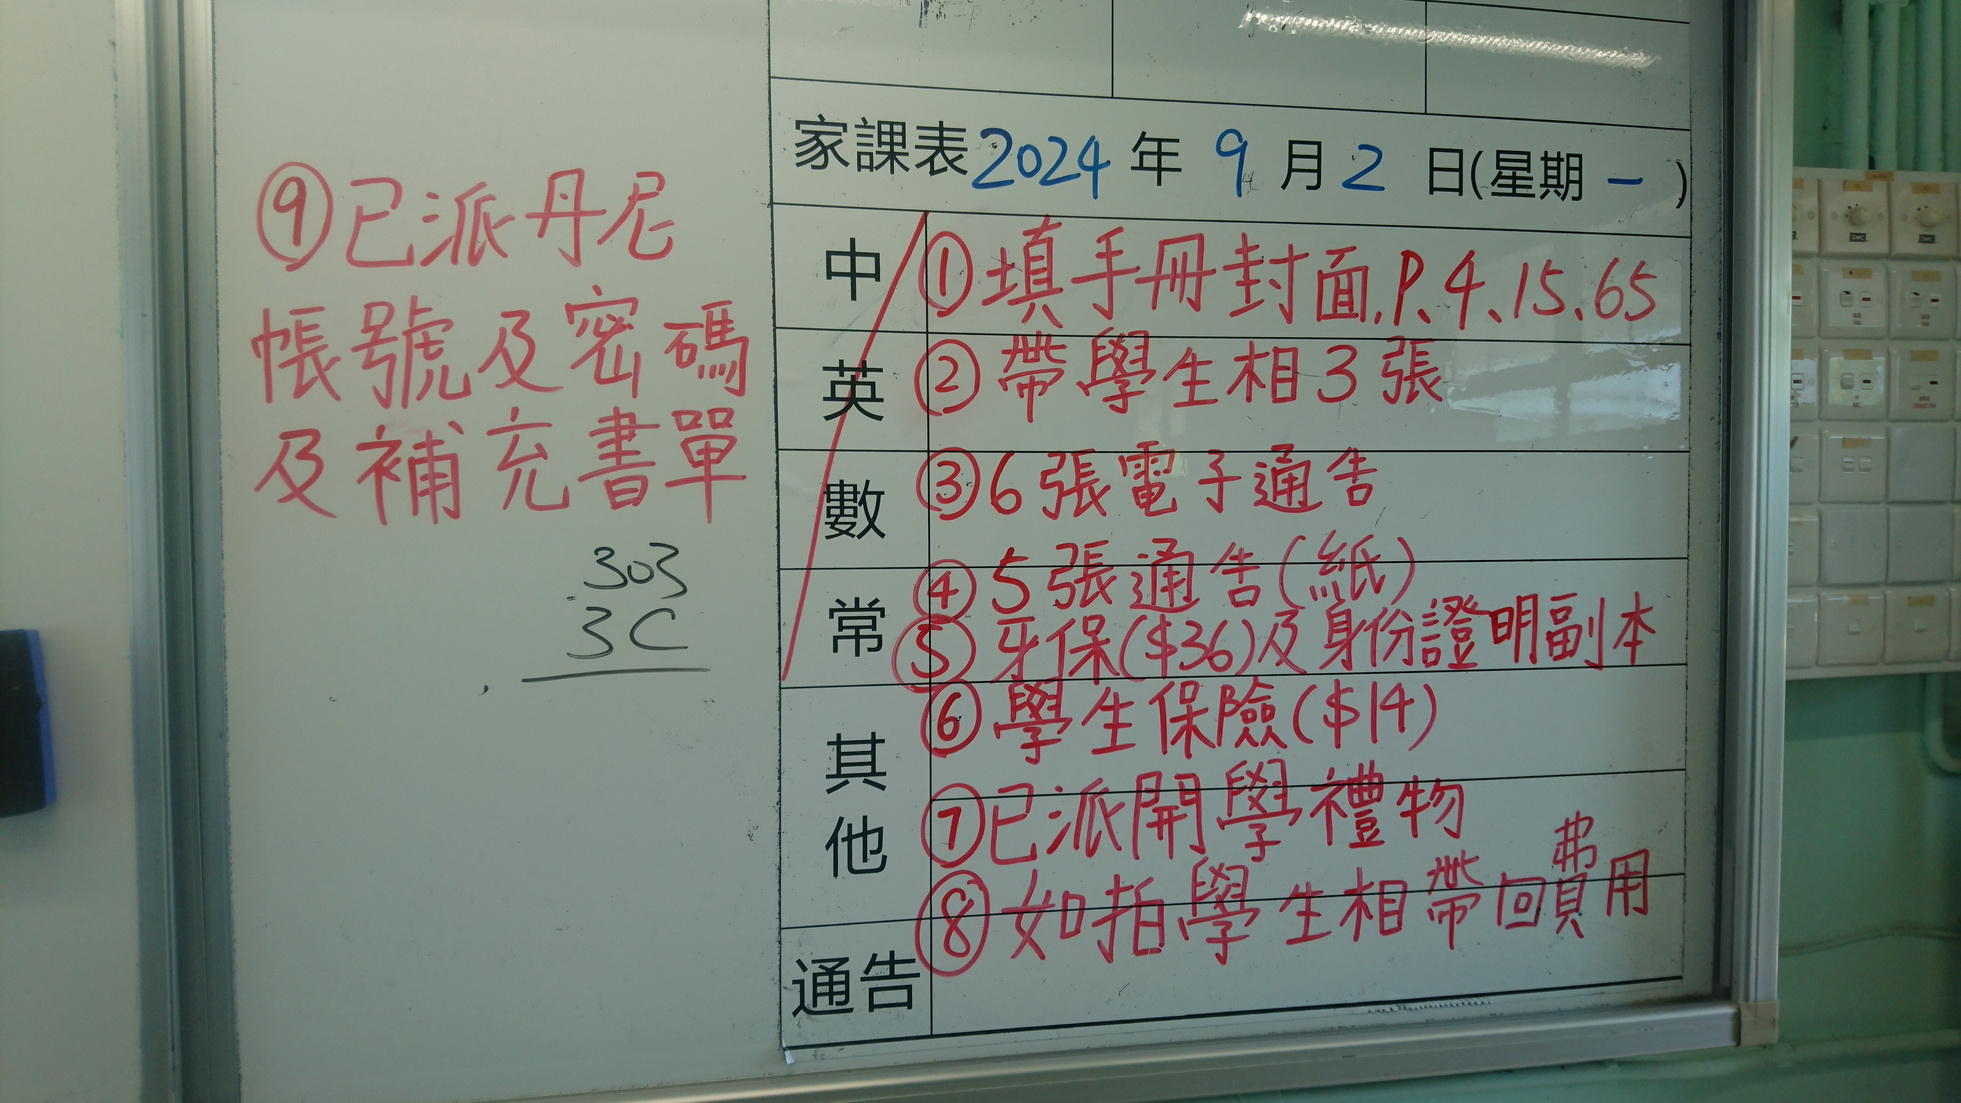 家課表2024年9月2日(星期一)
中
英
數
常
其他
通告
①填手冊封面,P.4、15、65
②帶學生相3張
③6張電子通告
④5張通告(紙)
⑤牙保($36)及身份證明副本
⑥學生保險($14)
⑦已派開學禮物
⑧如拍學生相帶回費用
⑨已派丹尼
帳號及密碼
及補充書單
303
3C